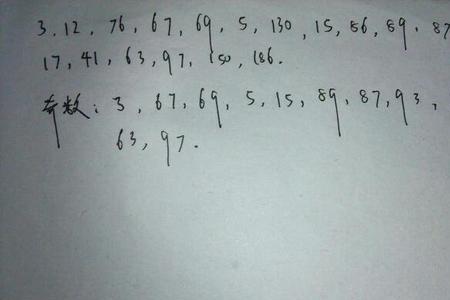 3, 12, 76, 67, 69, 5, 130, 15, 86, 89, 87
17, 41, 63, 97, 150, 186.
奇数: 3, 67, 69, 5, 15, 89, 87, 93,
63, 97.